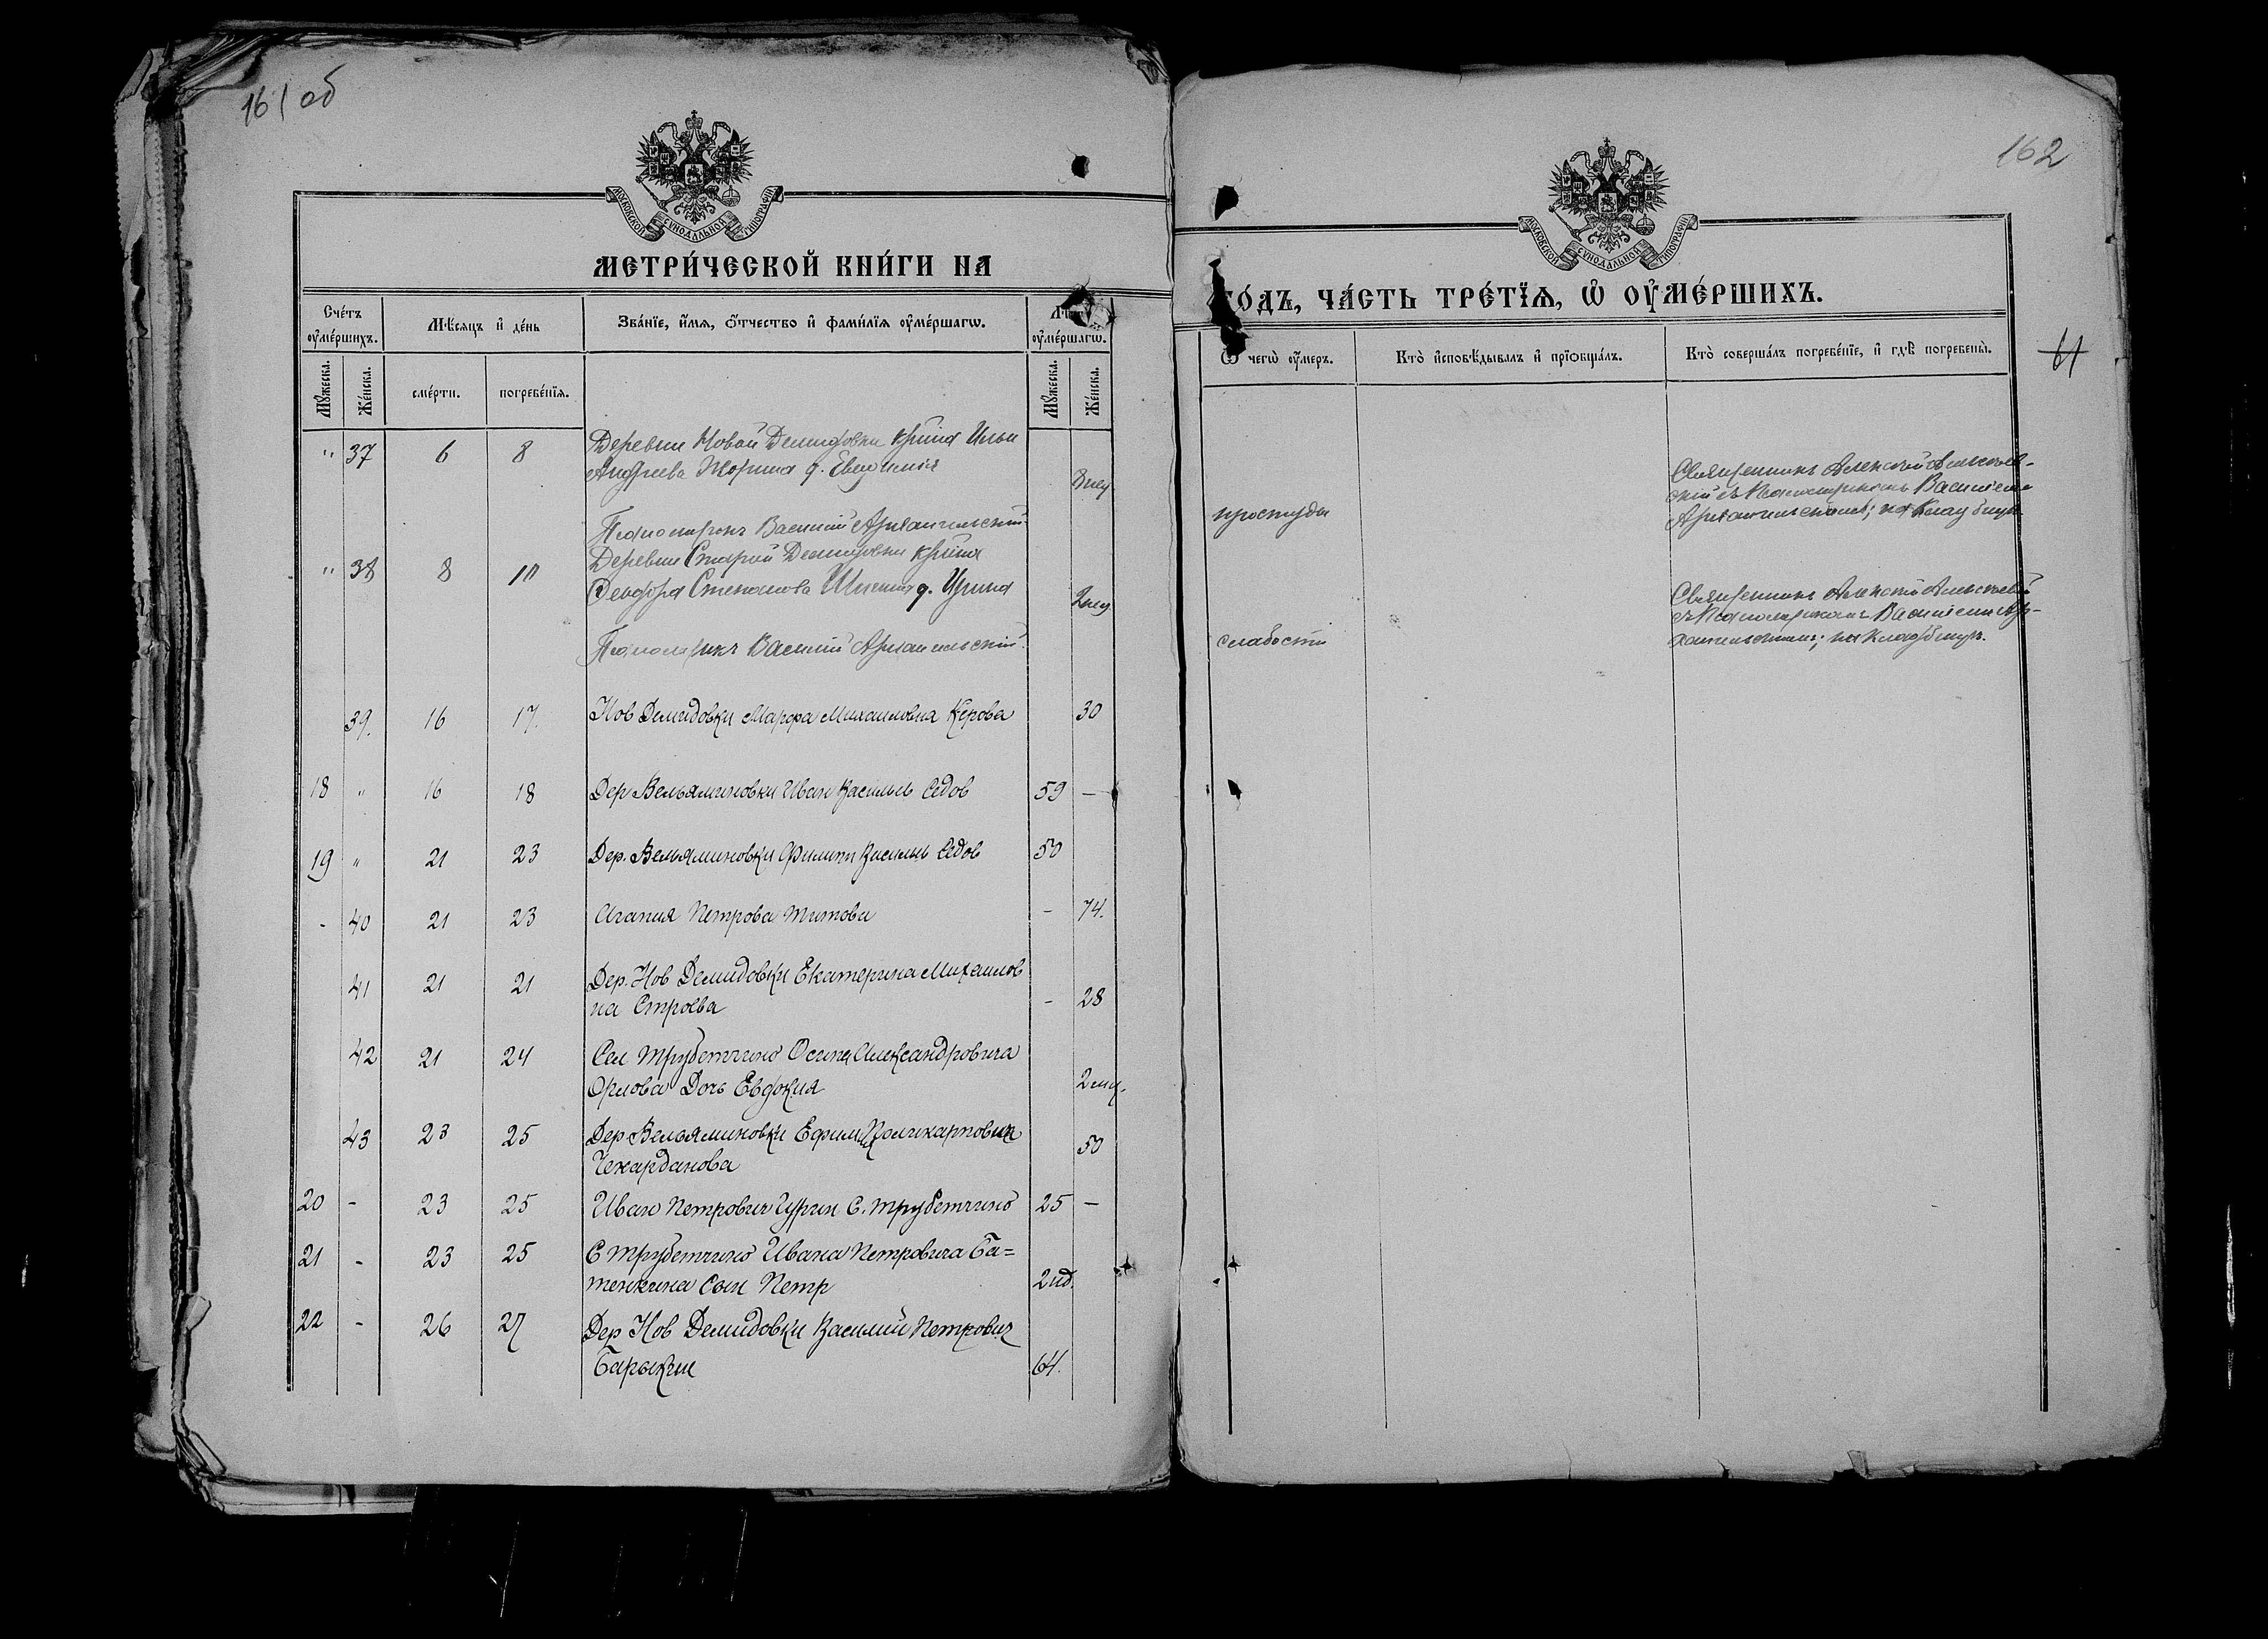 161 об
МОСКОВСКОЙ СУНОДАЛЬНОЙ ТИПОГРАФІИ
МЕТРИ́ЧЕСКОЙ КНИ́ГИ НА
Сче́тъ оумершихъ.
Мѣсяцъ и де́нь
Зва́нїе, и́мя, ѻ҆́тчество и҆ фами́лїя оу҆ме́ршагѡ.
оу҆ме́ршагѡ.
Мꙋжеска.
Же́нска.
сме́рти.
погребе́нїя.
Мꙋжеска.
Же́нска.
" 37 6 8 Деревни Новой Демидовки кр-на Ильи
Андреева д. Евфимия
3 нед.
Псаломщикъ Василий Архангельский
" 38 8 10 Деревни Старой Демидовки кр-на
Феодора Степанова д. Ирина
2 нед
Псаломщикъ Василий Архангельский
39. 16 17. Нов Демидовки Марфа Михаиловна Керова 30
18 " 16 18 Дер Вельяминовки Иван Василье Седов 59 —
19 " 21 23 Дер. Вельяминовки Филипп Василье Седов 50
- 40 21 23 Агапия Петрова Титова - 74.
41 21 21 Дер. Нов Демидовки Екатерина Михаилов
на Строева - 28
42 21 24 Сел Трубетчино Осипа Александровича
Орлова Дочь Евдокия 2 нид.
43 23 25 Дер Вельяминовки Ефим Поликарпович
Чекарданова 50
20 - 23 25 Иван Петрович Гурин С. Трубетчино 25 —
21 - 23 25 С Трубетчино Ивана Петровича Ба=
тенкина Сын Петр 2 нд.
22 - 26 27 Дер Нов Демидовки Василий Петрович
Барыкин 64.
162
МОСКОВСКОЙ СУНОДАЛЬНОЙ ТИПОГРАФІИ
ГО́ДЪ, ЧА́СТЬ ТРЕ́ТЇЯ, Ѡ҆ ОУ҆МЕ́РШИХЪ.
61
Ѿ чегѡ̀ оу҆́меръ.
Кто̀ и҆сповѣ́дывалъ и҆ прїѡбща́лъ.
Кто̀ соверша́лъ погребе́нїе, и҆ гдѣ̀ погребены̀.
простуды
Священникъ Алексей
съ Псаломщикомъ Василием
Архангельскимъ; на кладбище
слабости
Священникъ Алексей
съ Псаломщикомъ Василием Ар-
хангельскимъ; на кладбище.